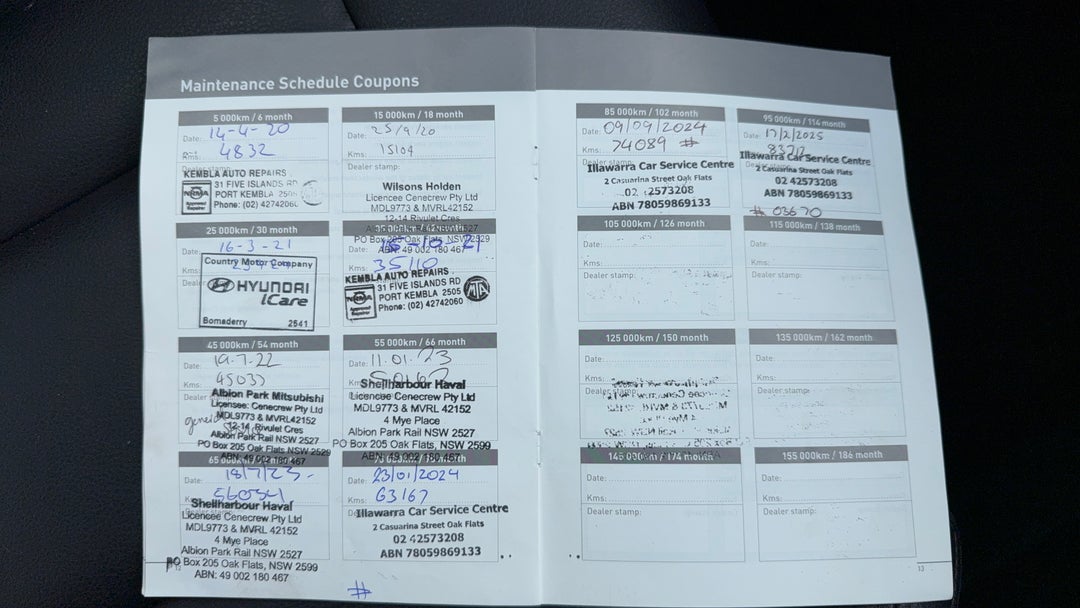 Maintenance Schedule Coupons
5 000km / 6 month
Date: 14-4-20
Kms: 4832
KEMBLA AUTO REPAIRS
31 FIVE ISLANDS RD
PORT KEMBLA 2505
Phone: (02) 42742060
NRMA
Approved
Repairer
15 000km / 18 month
Date: 25/9/20
Kms: 15104
Dealer stamp:
Wilsons Holden
Licencee Cenecrew Pty Ltd
MDL9773 & MVRL42152
12-14 Rivulet Cres
PO Box 205 Oak Flats, NSW 2529
ABN 49 002 180 467
25 000km / 30 month
Date: 16-3-21
Kms:
Country Motor Company
HYUNDAI
iCare
Bomaderry 2541
-10-21
35110
KEMBLA AUTO REPAIRS
31 FIVE ISLANDS RD
PORT KEMBLA 2505
Phone: (02) 42742060
NRMA
Approved
Repairer
MTA
45 000km / 54 month
Date: 19.7.22
Kms:
Dealer
Albion Park Mitsubishi
Licensee: Cenecrew Pty Ltd
MDL9773 & MVRL42152
12-14 Rivulet Cres
Albion Park Rail NSW 2527
PO Box 205 Oak Flats NSW 2529
ABN: 49 002 180 467
55 000km / 66 month
Date: 11.01.23
Kms:
Shellharbour Haval
Licencee Cenecrew Pty Ltd
MDL9773 & MVRL 42152
4 Mye Place
Albion Park Rail NSW 2527
PO Box 205 Oak Flats, NSW 2599
ABN: 49 002 180 467
65
Date: 18/7/23-
Kms:
Shellharbour Haval
Licencee Cenecrew Pty Ltd
MDL9773 & MVRL 42152
4 Mye Place
Albion Park Rail NSW 2527
PO Box 205 Oak Flats, NSW 2599
ABN: 49 002 180 467
Date: 23/01/2024
Kms: 63167
Illawarra Car Service Centre
2 Casuarina Street Oak Flats
02 42573208
ABN 78059869133
#
85 000km / 102 month
Date: 09/09/2024
Kms: 74089 #
Dealer stamp:
Illawarra Car Service Centre
2 Casuarina Street Oak Flats
02 42573208
ABN 78059869133
95 000km / 114 month
Date: 17/2/2025
Illawarra Car Service Centre
2 Casuarina Street Oak Flats
02 42573208
ABN 78059869133
# 03670
105 000km / 126 month
Date:
Kms:
Dealer stamp:
115 000km / 138 month
Date:
Kms:
Dealer stamp:
125 000km / 150 month
Date:
Kms:
Dealer stamp:
135 000km / 162 month
Date:
Kms:
Dealer stamp:
145 000km / 174 month
Date:
Kms:
Dealer stamp:
155 000km / 186 month
Date:
Kms:
Dealer stamp:
13